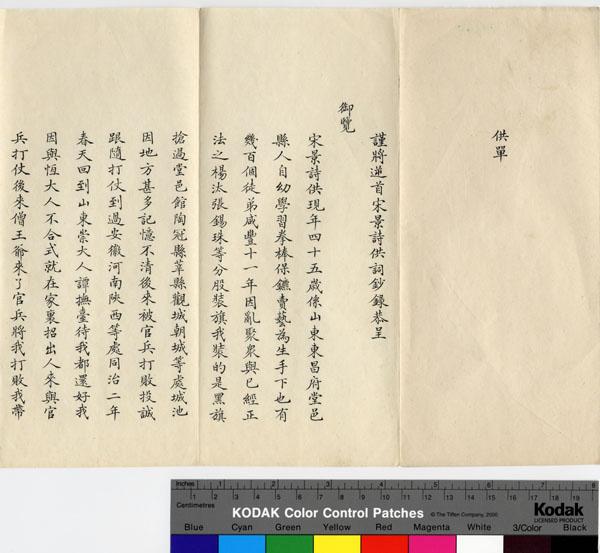 供單
謹將逆首宋景詩供詞鈔錄恭呈
御覽
宋景詩供現年四十五歲係山東東昌府堂邑
縣人自幼學習拳棒保鑣賣藝為生手下也有
幾百個徒弟咸豐十一年因亂聚眾與已經正
法之楊汰張錫珠等分股裝旗我裝的是黑旗
搶過堂邑館陶冠縣莘縣觀城朝城等處城池
因地方甚多記憶不清後來被官兵打敗投誠
跟隨打仗到過安徽河南陝西等處同治二年
春天回到山東崇大人譚撫臺待我都還好我
因與恆大人不合式就在家裏招出人來與官
兵打仗後來僧王爺來了官兵將我打敗我帶
Inches 1 2 3 4 5 6 7 8
Centimetres 1 2 3 4 5 6 7 8 9 10 11 12 13 14 15 16 17 18 19
KODAK Color Control Patches © The Tiffen Company, 2000 Kodak
LICENSED PRODUCT
Blue Cyan Green Yellow Red Magenta White 3/Color Black